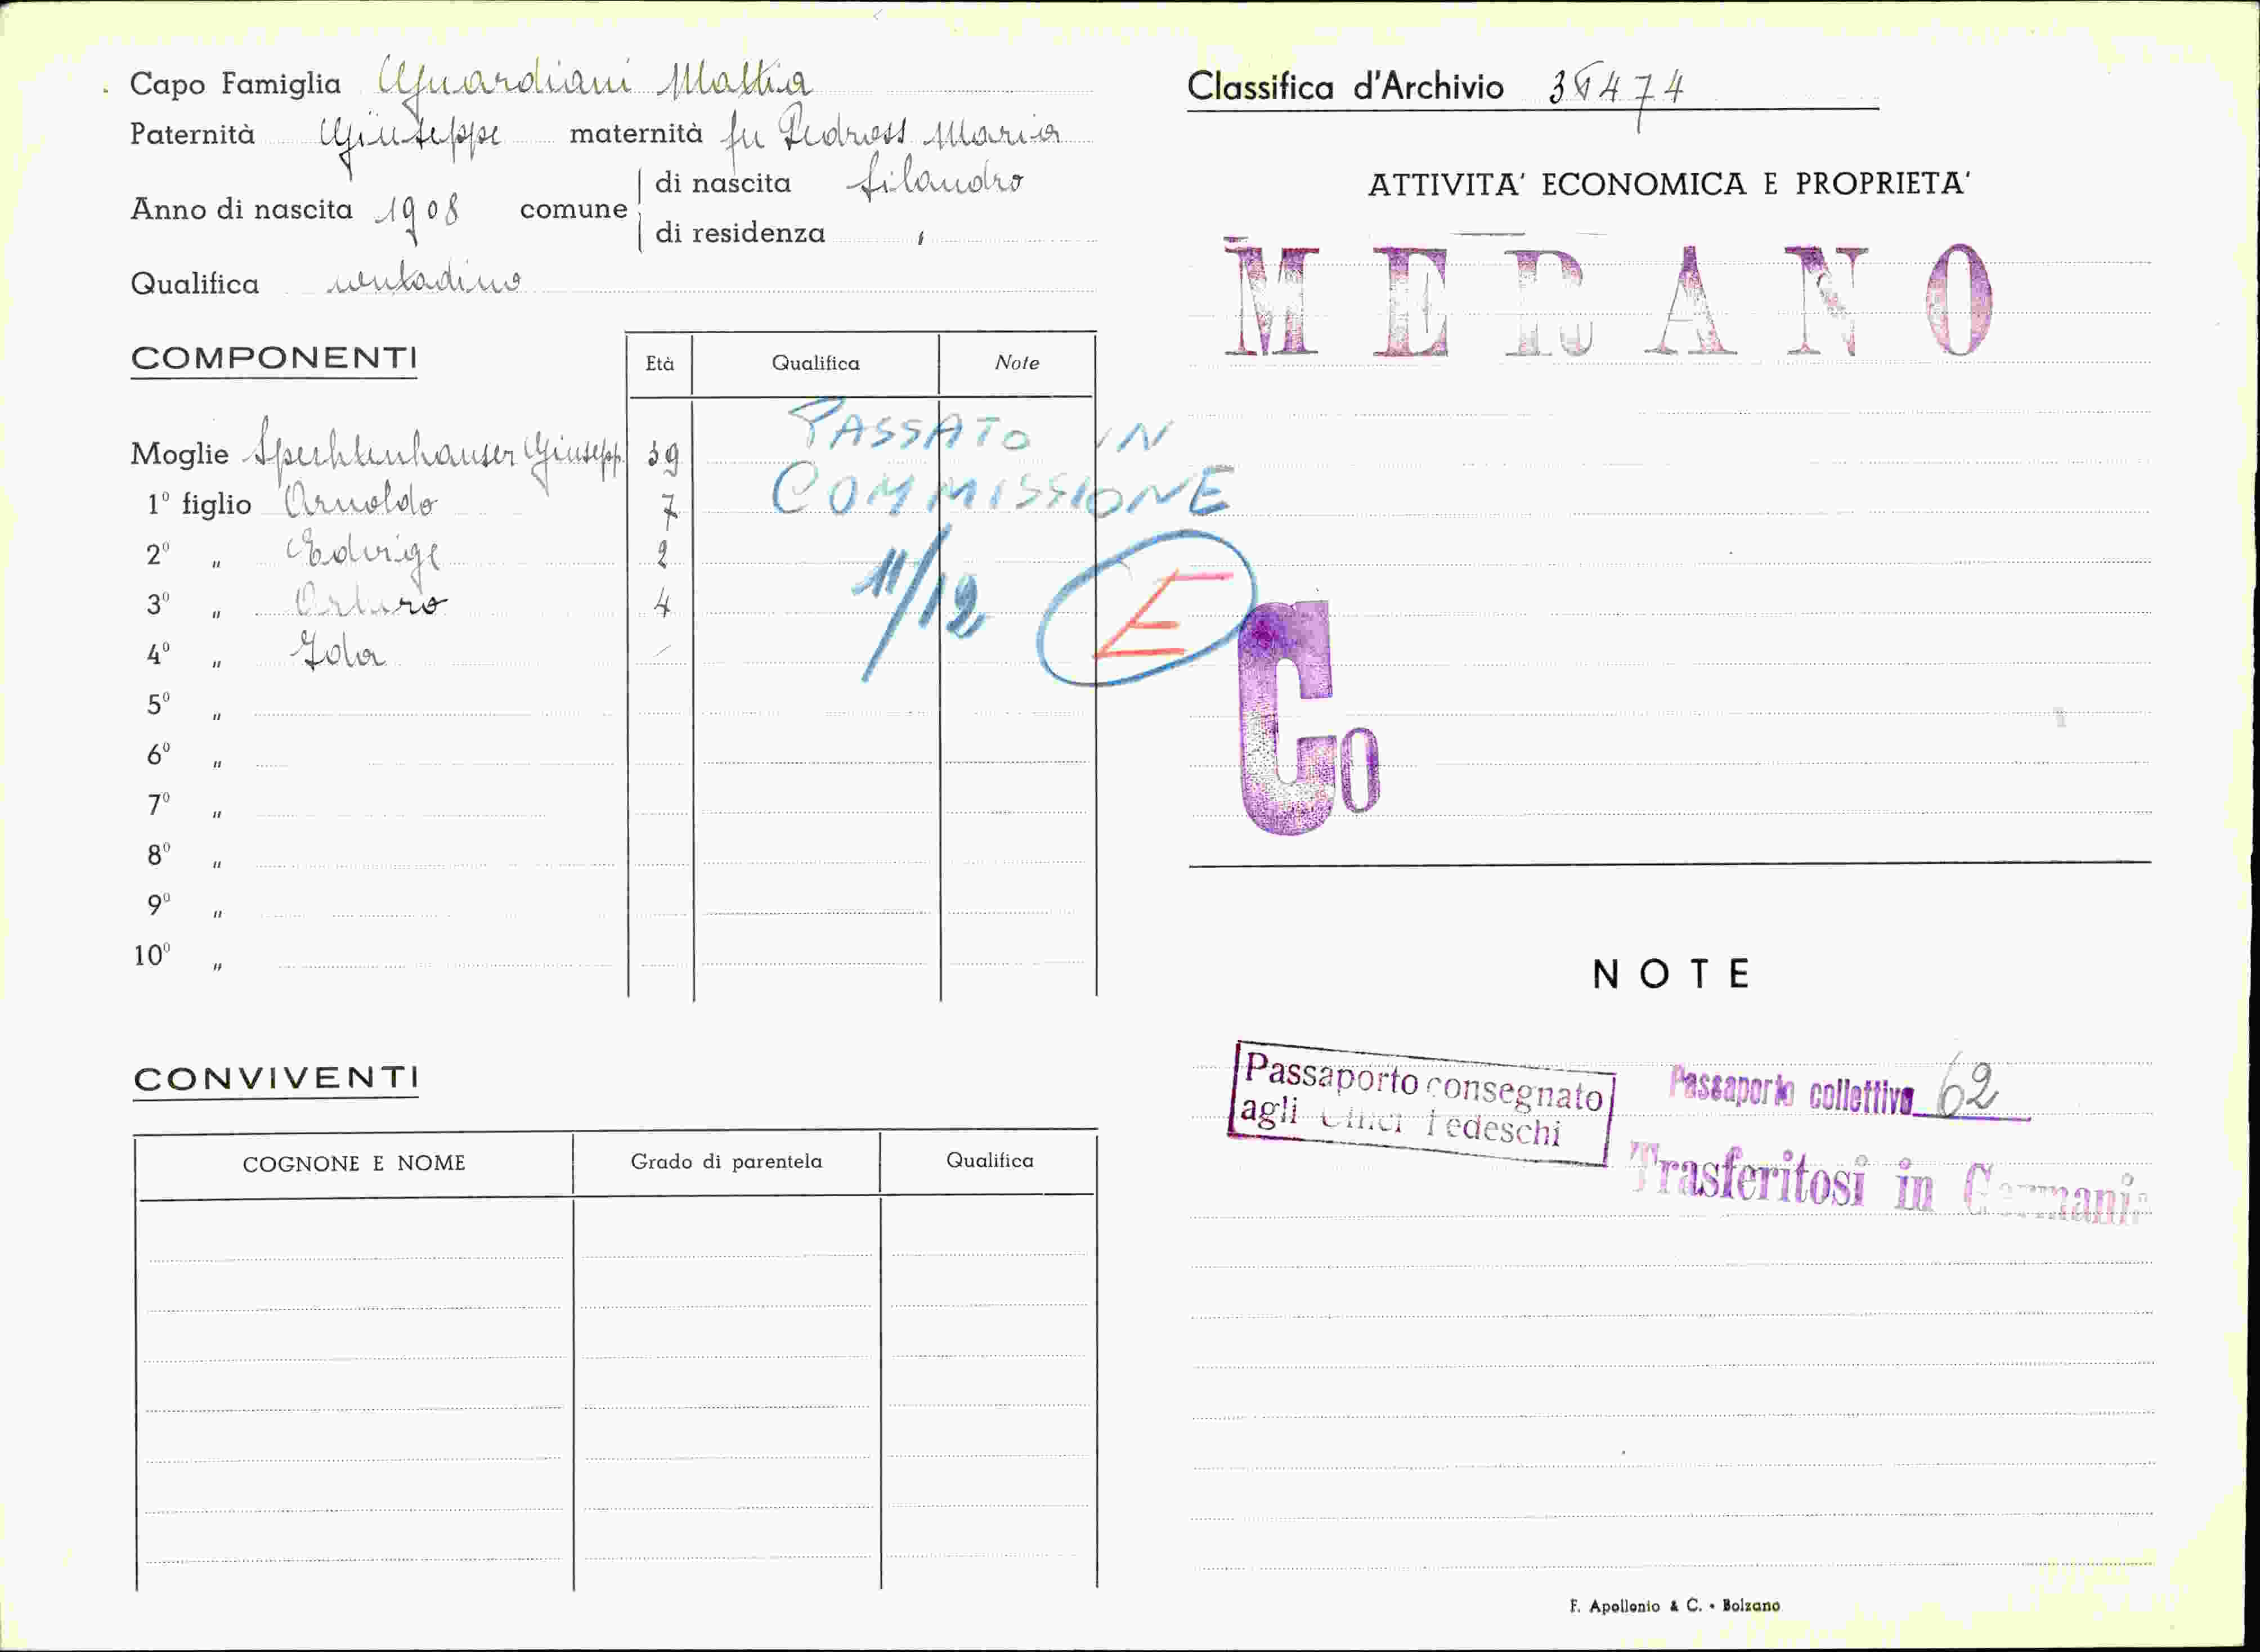 Capo Famiglia Guardiani Mattia
Paternità Giuseppe maternità fu Pedross Maria
Anno di nascita 1908 comune
di nascita Silandro
di residenza "
Qualifica contadino
COMPONENTI
Età Qualifica Note
PASSATO IN
Moglie Spechtenhauser Giusepp. 39
COMMISSIONE
1º figlio Arnoldo 7
2º " Edvige 2
11/12 E
3º " Arturo 4
4º " Ida /
5º "
6º "
7º "
8º "
9º "
10º "
CONVIVENTI
COGNONE E NOME Grado di parentela Qualifica
Classifica d'Archivio 474
ATTIVITA' ECONOMICA E PROPRIETA'
MERANO
Co
NOTE
Passaporto consegnato
agli Uffici Tedeschi
Passaporto collettivo 62
Trasferitosi in Germania
F. Apollonio & C. • Bolzano